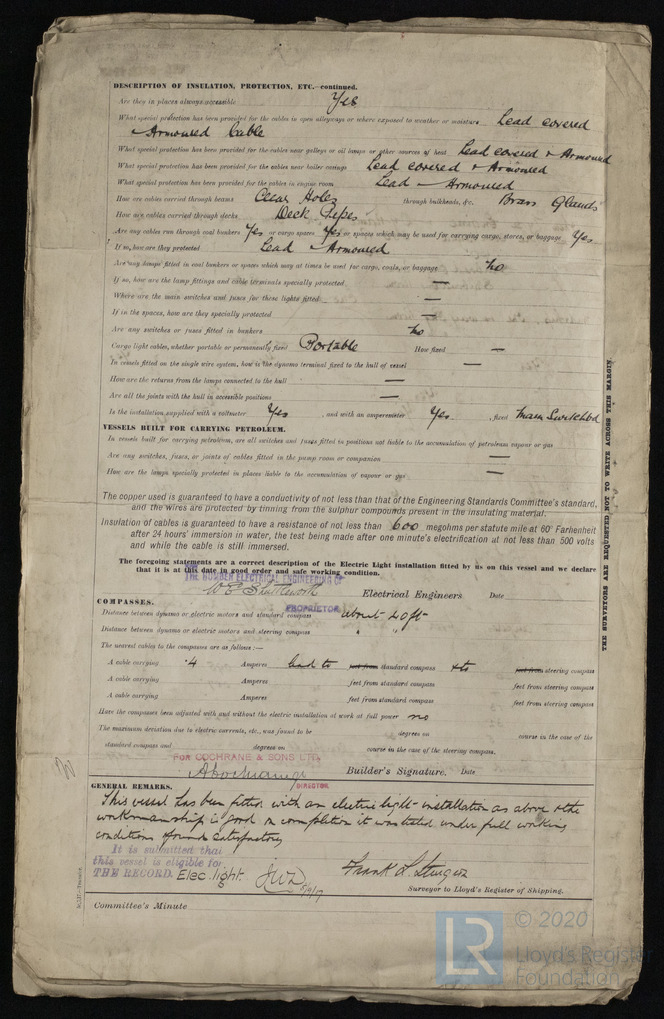 DESCRIPTION OF INSULATION, PROTECTION, ETC.—continued.
Are they in places always accessible Yes
What special protection has been provided for the cables in open alleyways or where exposed to weather or moisture Lead covered
Armoured Cable
What special protection has been provided for the cables near galleys or oil lamps or other sources of heat Lead covered + Armoured
What special protection has been provided for the cables near boiler casings Lead covered + Armoured
What special protection has been provided for the cables in engine room Lead — Armoured
How are cables carried through beams Clear Holes through bulkheads, &c. Brass Glands
How are cables carried through decks Deck Pipes
Are any cables run through coal bunkers Yes or cargo spaces Yes or spaces which may be used for carrying cargo, stores, or baggage Yes
If so, how are they protected Lead Armoured
Are any lamps fitted in coal bunkers or spaces which may at times be used for cargo, coals, or baggage no
If so, how are the lamp fittings and cable terminals specially protected —
Where are the main switches and fuses for these lights fitted —
If in the spaces, how are they specially protected —
Are any switches or fuses fitted in bunkers no
Cargo light cables, whether portable or permanently fixed Portable How fixed —
In vessels fitted on the single wire system, how is the dynamo terminal fixed to the hull of vessel —
How are the returns from the lamps connected to the hull —
Are all the joints with the hull in accessible positions —
Is the installation supplied with a voltmeter Yes , and with an amperemeter Yes , fixed Main Switchbd
VESSELS BUILT FOR CARRYING PETROLEUM.
In vessels built for carrying petroleum, are all switches and fuses fitted in positions not liable to the accumulation of petroleum vapour or gas
Are any switches, fuses, or joints of cables fitted in the pump room or companion —
How are the lamps specially protected in places liable to the accumulation of vapour or gas —
The copper used is guaranteed to have a conductivity of not less than that of the Engineering Standards Committee's standard,
and the wires are protected by tinning from the sulphur compounds present in the insulating material.
Insulation of cables is guaranteed to have a resistance of not less than 600 megohms per statute mile at 60° Farhenheit
after 24 hours' immersion in water, the test being made after one minute's electrification at not less than 500 volts
and while the cable is still immersed.
The foregoing statements are a correct description of the Electric Light installation fitted by us on this vessel and we declare
that it is at this date in good order and safe working condition.
THE HUMBER ELECTRICAL ENGINEERING Co
Electrical Engineers Date
PROPRIETOR
COMPASSES.
Distance between dynamo or electric motors and standard compass about 40 ft
Distance between dynamo or electric motors and steering compass " "
The nearest cables to the compasses are as follows:—
A cable carrying .4 Amperes lead to standard compass + to steering compass
A cable carrying Amperes feet from standard compass feet from steering compass
A cable carrying Amperes feet from standard compass feet from steering compass
Have the compasses been adjusted with and without the electric installation at work at full power no
The maximum deviation due to electric currents, etc., was found to be degrees on course in the case of the
standard compass and degrees on course in the case of the steering compass.
FOR COCHRANE & SONS LTD.
Builder's Signature. Date
DIRECTOR.
GENERAL REMARKS.
This vessel has been fitted with an electric light installation as above & the
workmanship is good on completion it was tested under full working
conditions & found satisfactory
It is submitted that
this vessel is eligible for
THE RECORD. Elec. light.
Frank L. Sturgess
Surveyor to Lloyd's Register of Shipping.
Committee's Minute
THE SURVEYORS ARE REQUESTED NOT TO WRITE ACROSS THIS MARGIN.
LR © 2020
Lloyd's Register
Foundation